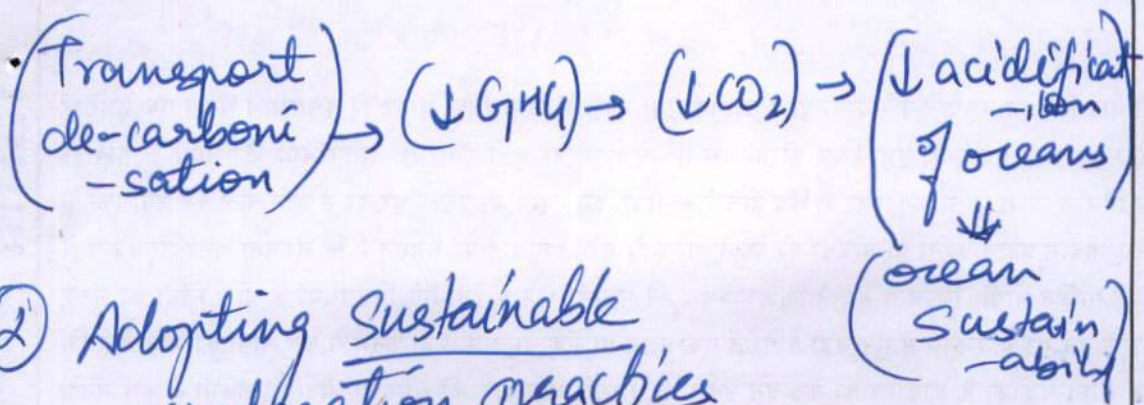 (Transport de-carboni-sation) → (↓ GHG) → (↓ CO2) → (↓ acidificat-ion of oceans
⇓
ocean Sustain-ability)
2) Adopting sustainable
practices